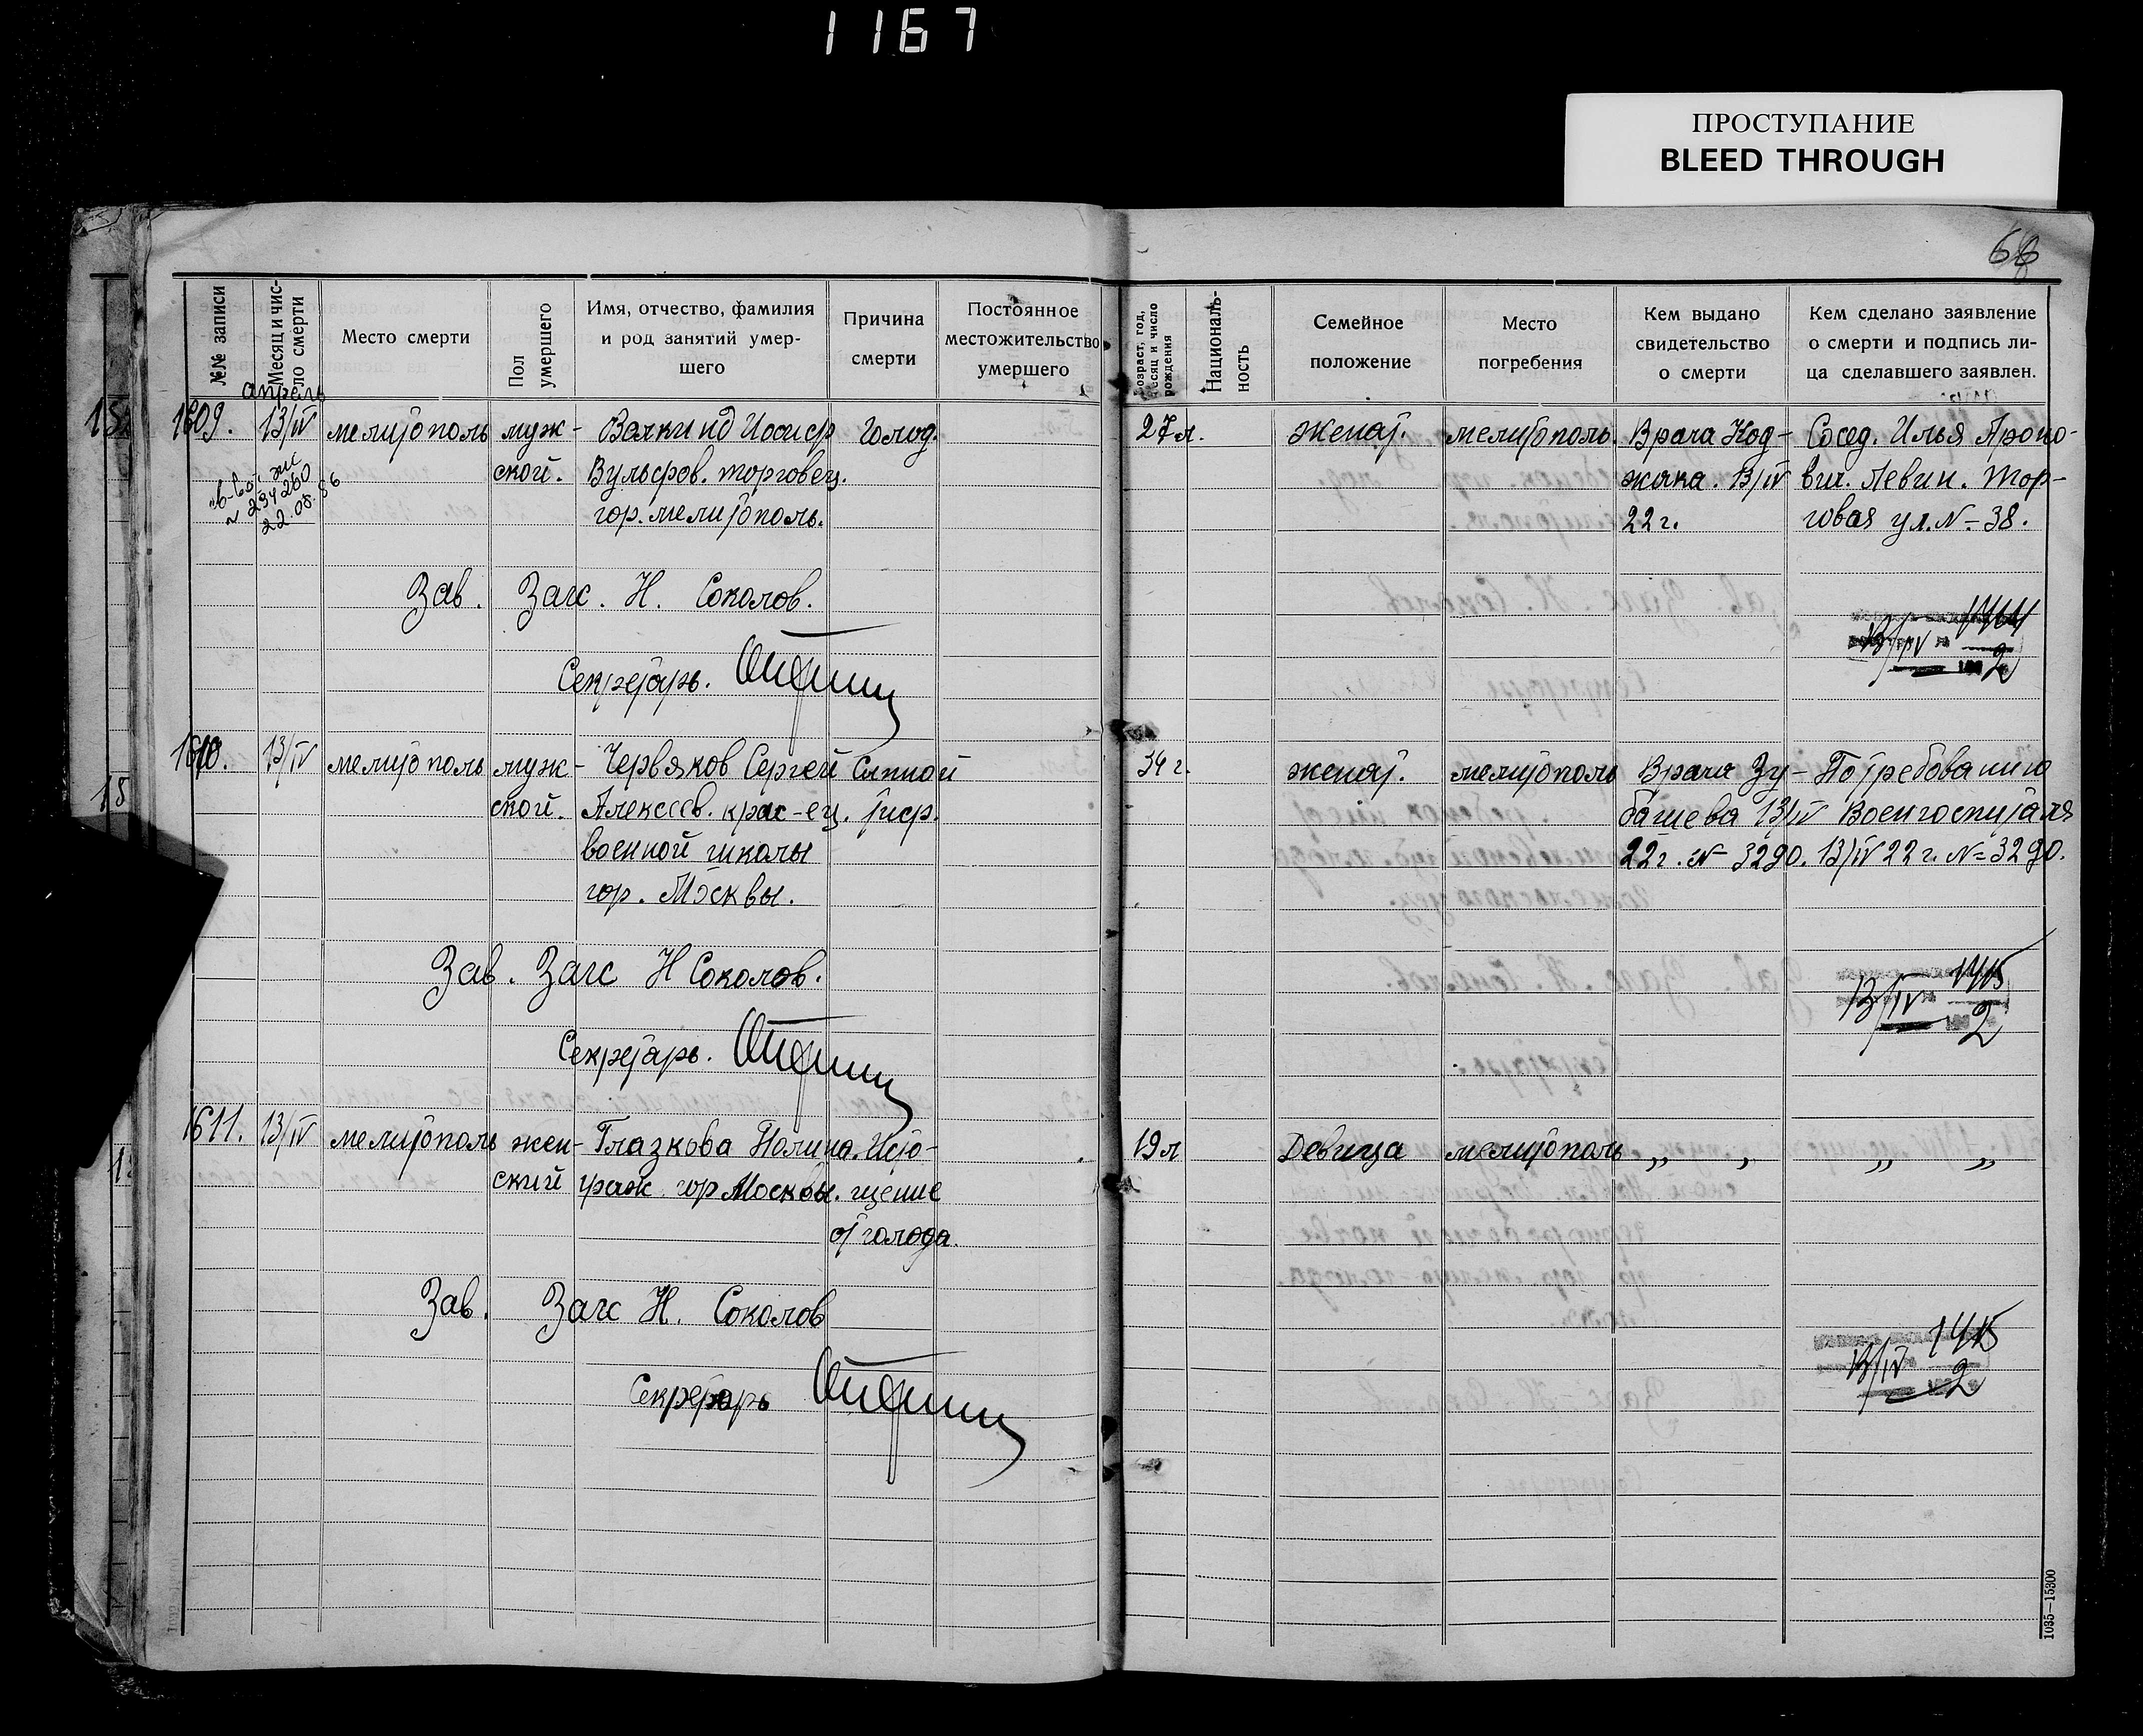 1167
ПРОСТУПАНИЕ
BLEED THROUGH
66
№№ записи
Месяц и чис-
ло смерти
Место смерти
Пол
умершего
Имя, отчество, фамилия
и род занятий умер-
шего
Причина
смерти
Постоянное
местожительство
умершего
возраст, год,
месяц и число
рождения
Националь-
ность
Семейное
положение
Место
погребения
Кем выдано
свидетельство
о смерти
Кем сделано заявление
о смерти и подпись ли-
ца сделавшего заявлен.
апрель
1609. 13/IV мелитополь муж- Иосиф голод. 27 л. женат. мелитополь. Врача Код- Сосед. Илья
ской. Вульфов. торговец. 13/IV вич. Левин. Тор-
гор. мелитополь. 22 г. говая ул. № 38.
№ 234260
22.08.86
Зав. Загс. Н. Соколов.
13/IV
2
Секретарь.
1610. 13/IV мелитополь муж- Червяков Сергей Сыпной 34 г. женат. мелитополь Врача Зу- По требованию
ской. Алексеев. крас-ец. тиф. башева 13/IV Военгоспиталя
военной школы 22 г. № 3290. 13/IV 22 г. № 3290.
гор. Москвы.
Зав. Загс Н Соколов.
13/IV 1415
2
Секретарь.
1611. 13/IV мелитополь жен- Глазкова Полина. Исто- 19 л Девица мелитополь „ „ „ „
ский граж. гор Москвы. щение
от голода.
Зав. Загс Н. Соколов
13/IV 1415
2
Секретарь
1035—15300